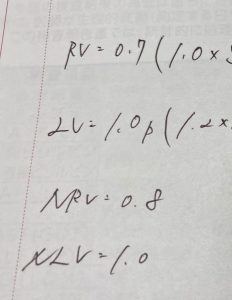 RV = 0.7 ( 1.0 ×
LV = 1.0p ( 1.2 ×
NRV = 0.8
NLV = 1.0